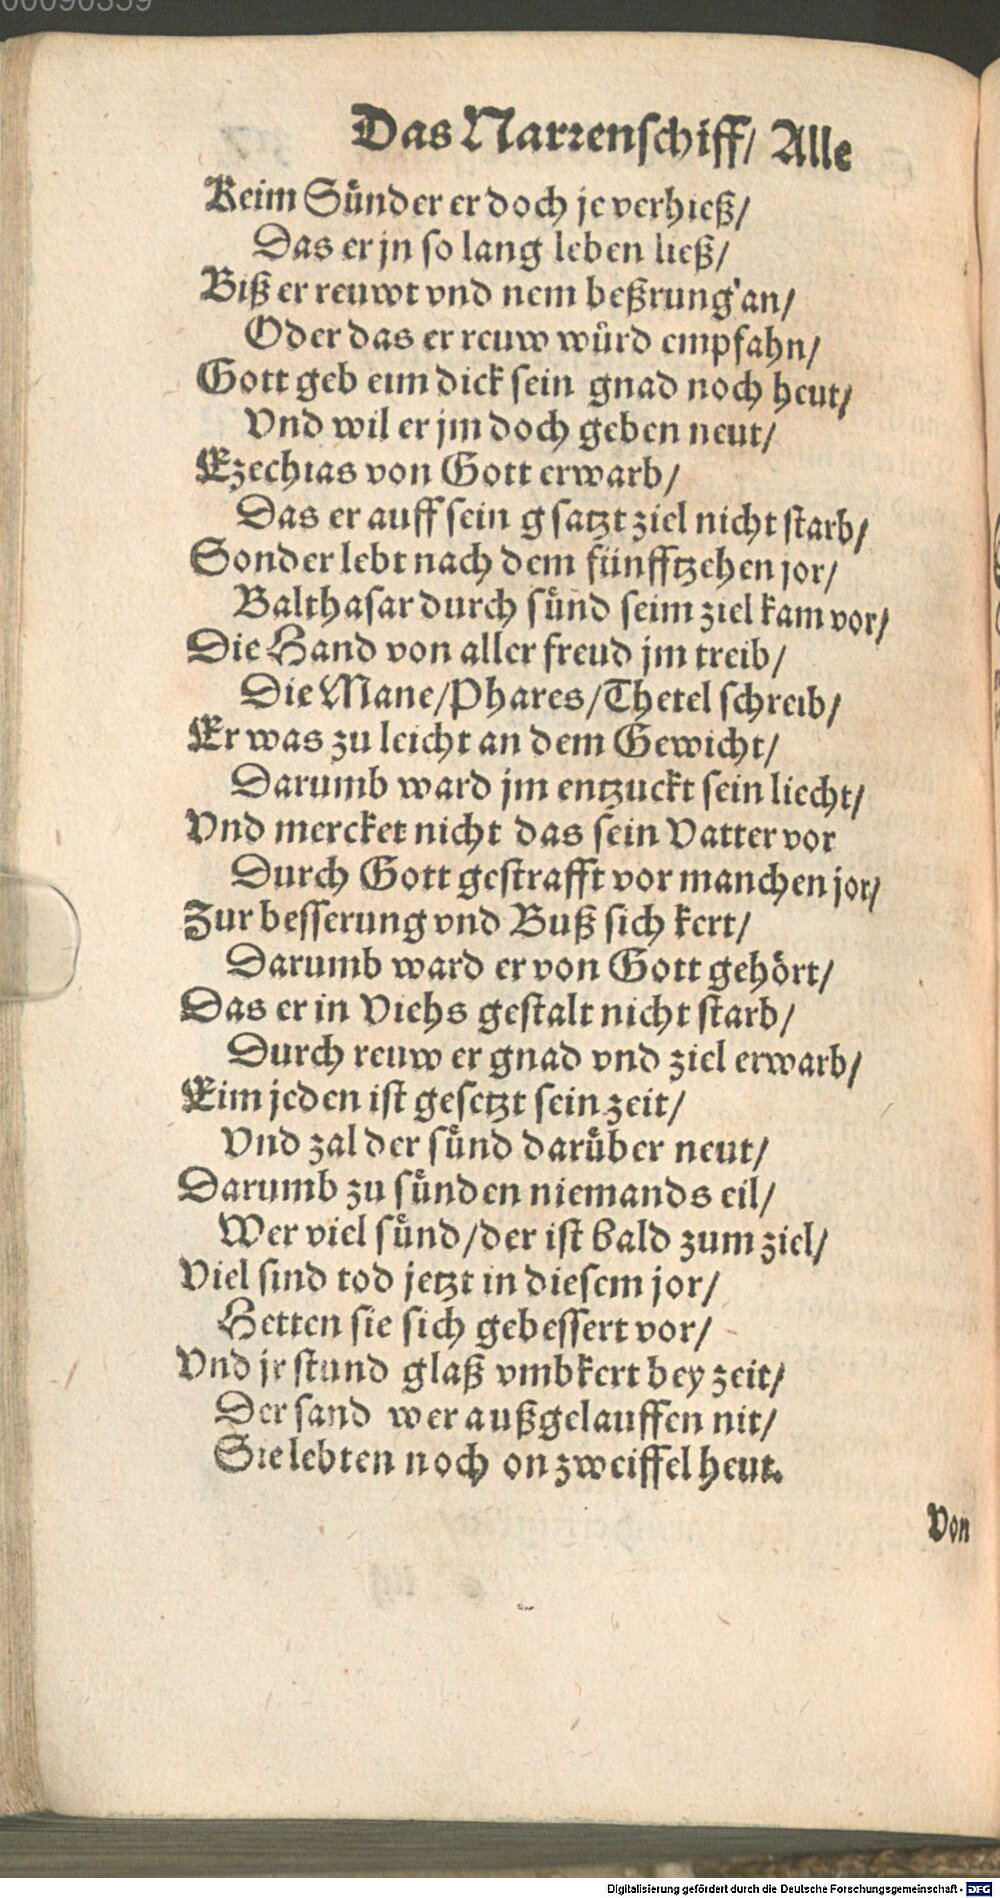 00090359
Das Narrenschiff/ Alle
Keim Sünder er doch je verhieß/
Das er jn so lang leben ließ/
Biß er reuwt vnd nem beßrung an/
Oder das er reuw würd empfahn/
Gott geb eim dick sein gnad noch heut/
Vnd wil er jm doch geben neut/
Ezechias von Gott erwarb/
Das er auff sein gsatzt ziel nicht starb/
Sonder lebt nach dem fünfftzehen jor/
Balthasar durch sünd seim ziel kam vor/
Die Hand von aller freud jm treib/
Die Mane/Phares/Thetel schreib/
Er was zu leicht an dem Gewicht/
Darumb ward jm entzuckt sein liecht/
Vnd mercket nicht das sein Vatter vor
Durch Gott gestrafft vor manchen jor/
Zur besserung vnd Buß sich kert/
Darumb ward er von Gott gehört/
Das er in Viehs gestalt nicht starb/
Durch reuw er gnad vnd ziel erwarb/
Eim jeden ist gesetzt sein zeit/
Vnd zal der sünd darüber neut/
Darumb zu sünden niemands eil/
Wer viel sünd/der ist bald zum ziel/
Viel sind tod jetzt in diesem jor/
Hetten sie sich gebessert vor/
Vnd jr stund glaß vmbkert bey zeit/
Der sand wer außgelauffen nit/
Sie lebten noch on zweiffel heut.
Von
Digitalisierung gefördert durch die Deutsche Forschungsgemeinschaft - DFG